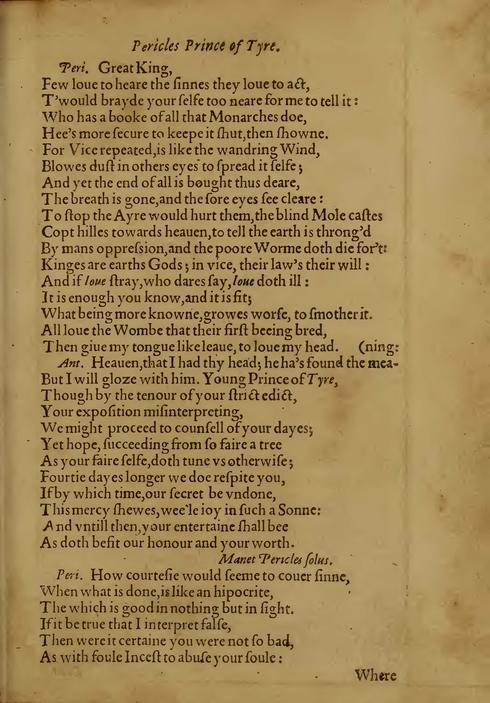 Pericles Prince of Tyre.
Peri. Great King,
Few loue to heare the ſinnes they loue to act,
T'would brayde your ſelfe too neare for me to tell it:
Who has a booke of all that Monarches doe,
Hee's more ſecure to keepe it ſhut,then ſhowne.
For Vice repeated,is like the wandring Wind,
Blowes duſt in others eyes to ſpread it ſelfe;
And yet the end of all is bought thus deare,
The breath is gone,and the ſore eyes ſee cleare:
To ſtop the Ayre would hurt them,the blind Mole caſtes
Copt hilles towards heauen,to tell the earth is throng'd
By mans oppreſsion,and the poore Worme doth die for't:
Kinges are earths Gods; in vice, their law's their will:
And if Ioue ſtray,who dares ſay,Ioue doth ill:
It is enough you know,and it is fit;
What being more knowne,growes worſe, to ſmother it.
All loue the Wombe that their firſt beeing bred,
Then giue my tongue like leaue, to loue my head. (ning:
Ant. Heauen,that I had thy head; he ha's found the mea-
But I will gloze with him. Young Prince of Tyre,
Though by the tenour of your ſtrict edict,
Your expoſition miſinterpreting,
We might proceed to counſell of your dayes;
Yet hope, ſucceeding from ſo faire a tree
As your faire ſelfe,doth tune vs otherwiſe;
Fourtie dayes longer we doe reſpite you,
If by which time,our ſecret be vndone,
This mercy ſhewes,wee'le ioy in ſuch a Sonne:
And vntill then,your entertaine ſhall bee
As doth befit our honour and your worth.
Manet Pericles ſolus.
Peri. How courteſie would ſeeme to couer ſinne,
When what is done,is like an hipocrite,
The which is good in nothing but in ſight.
If it be true that I interpret falſe,
Then were it certaine you were not ſo bad,
As with foule Inceſt to abuſe your ſoule:
Where